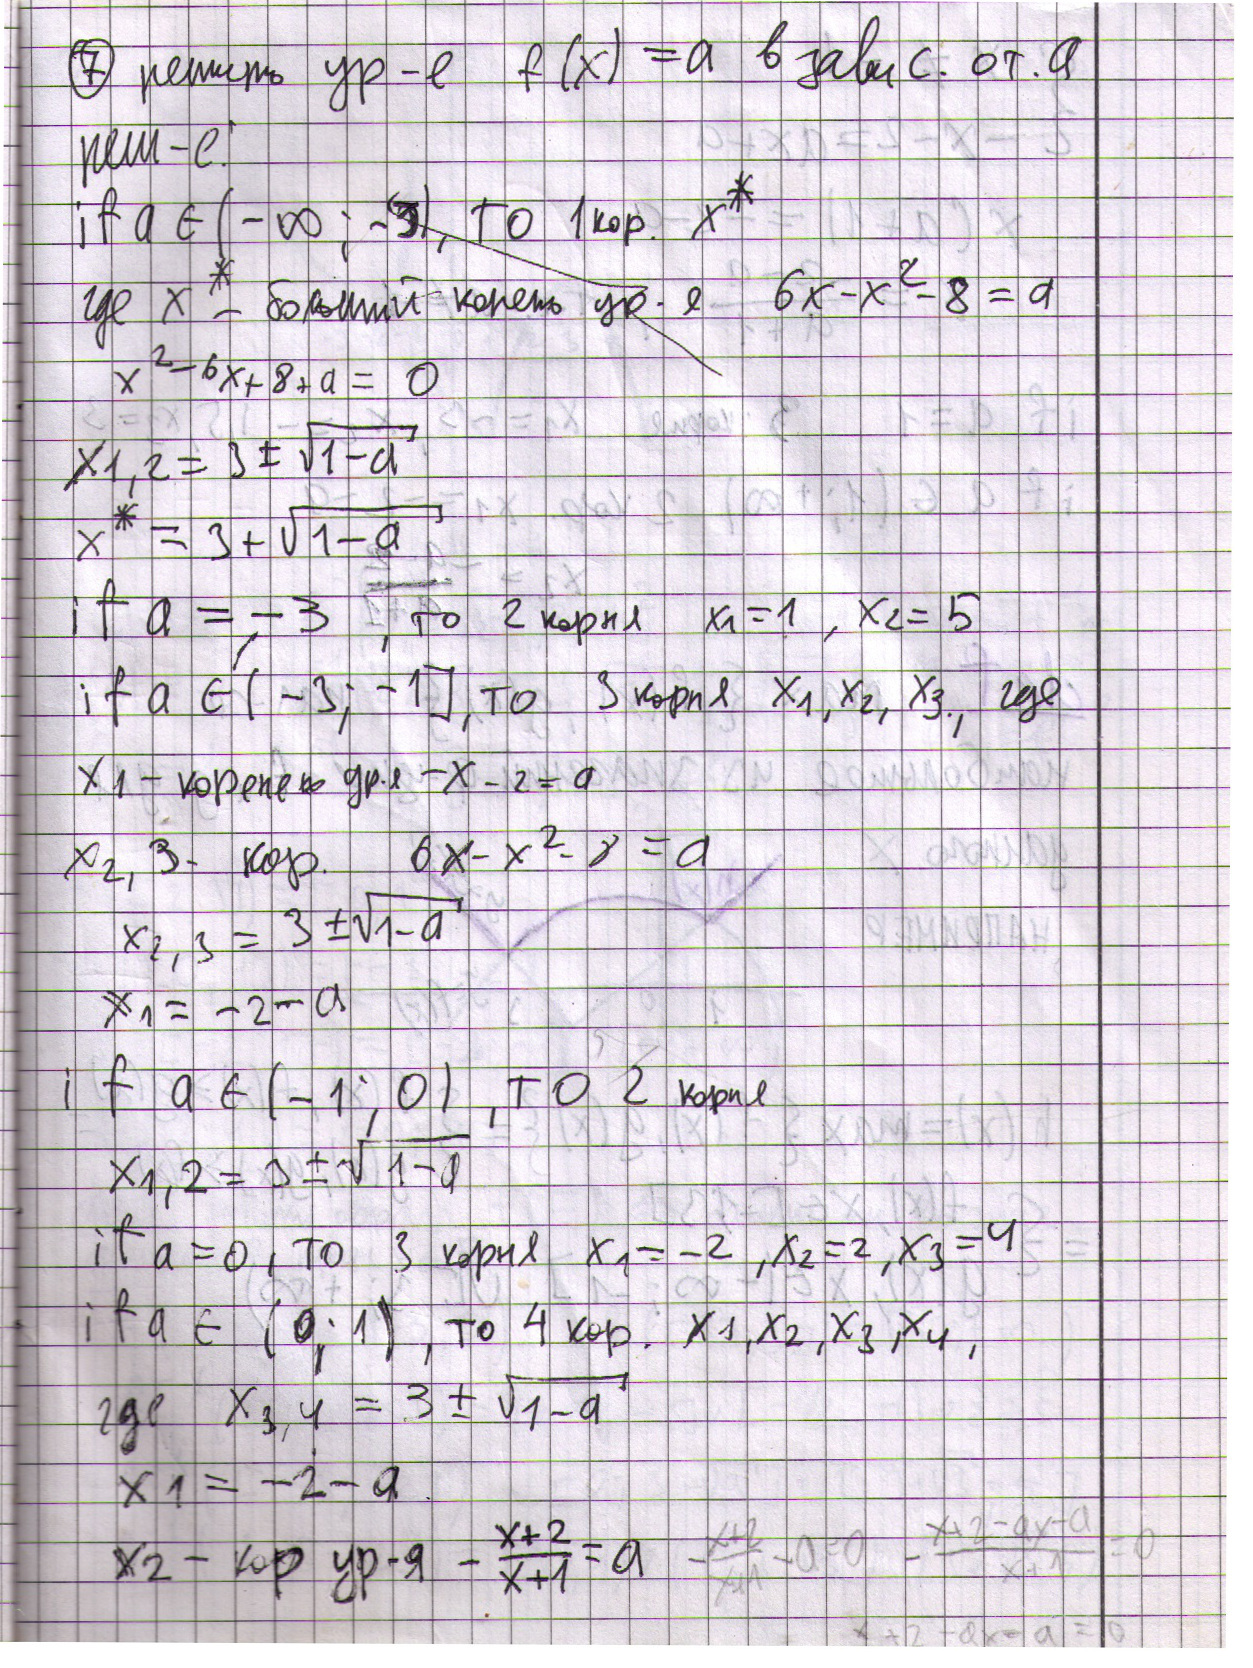 7 решить ур-е f(x) = a в завис. от. a
реш-е:
if a ∈ (-∞; -3), то 1 кор. x*
где x* - больший корень ур-я 6x - x² - 8 = a
x² - 6x + 8 + a = 0
x1,2 = 3 ± √1-a
x* = 3 + √1-a
if a = -3, то 2 корня x1 = 1, x2 = 5
if a ∈ (-3; -1], то 3 корня x1, x2, x3, где
x1 - корень ур-я -x - 2 = a
x2,3 - кор. 6x - x² - 8 = a
x2,3 = 3 ± √1-a
x1 = -2 - a
if a ∈ (-1; 0), то 2 корня
x1,2 = 3 ± √1-a
if a = 0, то 3 корня x1 = -2, x2 = 2, x3 = 4
if a ∈ (0; 1), то 4 кор. x1, x2, x3, x4,
где x3,4 = 3 ± √1-a
x1 = -2 - a
x2 - кор ур-я - (x+2)/(x+1) = a - (x+2)/(x+1) - a = 0 - (x+2-ax-a)/(x+1) = 0
x+2-ax-a = 0